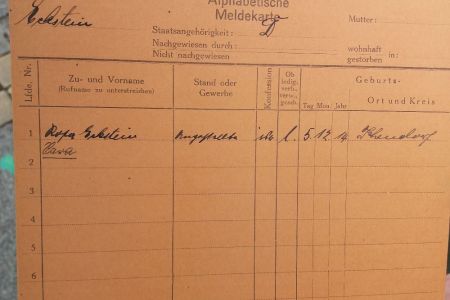 Eckstein
Alphabetische
Meldekarte
Mutter:
Staatsangehörigkeit: D
Nachgewiesen durch:
Nicht nachgewiesen
wohnhaft
gestorben
in:
Lfde. Nr.
Zu- und Vorname
(Rufname zu unterstreichen)
Stand oder
Gewerbe
Konfession
Ob
ledig,
verh.,
verw.,
gesch.
Geburts-
Tag Mon. Jahr
Ort und Kreis
1
Rosa Eckstein
Angestellte
isr.
l.
5. 12. 14
Hara
2
3
3
4
5
6